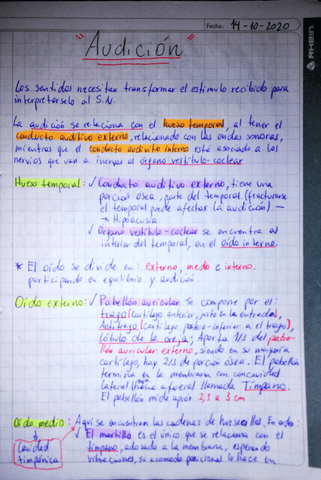 Fecha: 14-10-2020
RHEIN
"Audición"
Los sentidos necesitan transformar el estímulo recibido para
interpretarselo al S.N.
La audición se relaciona con el hueso temporal, al tener el
conducto auditivo externo, relacionado con las ondas sonoras,
mientras que el conducto auditivo interno esta asociado a los
nervios que van a inervar al órgano vestíbulo-coclear
Hueso temporal: ✓ Conducto auditivo externo, tiene una
porción osea, parte del temporal (fracturarse
el temporal puede afectar la audición) →
→ Hipoacusia
✓ Órgano vestíbulo-coclear se encuentra al
interior del temporal, en el oído interno.
* El oído se divide en: externo, medio e interno.
participando en equilibrio y audición
Oído externo: ✓ Pabellón auricular se compone por el:
trago (cartílago anterior, justo en la entrada),
Antitrago (cartílago postero-inferior a el trago),
lóbulo de la oreja; Aporta 1/3 del pabe-
llón auricular externo, siendo en su mayoría
cartílago, hay 2/3 de porción osea. El pabellón
termina en la membrana con concavidad
lateral (hacia afuera) llamada Tímpano.
El pabellón mide aprox 2,5 a 3 cm
Oído medio: Aquí se encuentran las cadenas de huesecillos. En orden:
Cavidad
timpánica
✓ El martillo es el único que se relaciona con el
tímpano, adosado a la membrana, esperando
vibraciones, se acomoda posicional, lo hace en